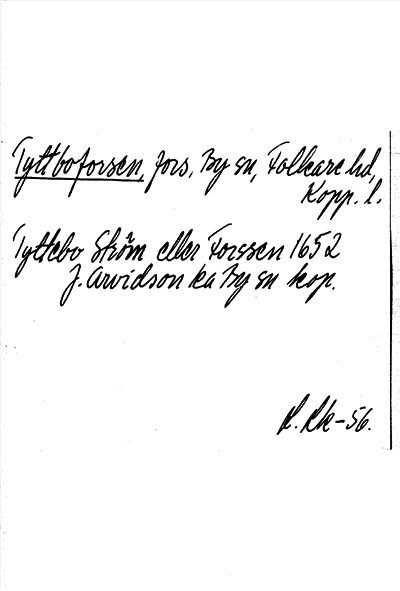 Tyttboforsen, fors, By sn, Folkare hd,
Kopp. l.
Tyttebo Ström eller Forssen 1652
J. Arvidson ka By sn kop.
R. Rk-56.